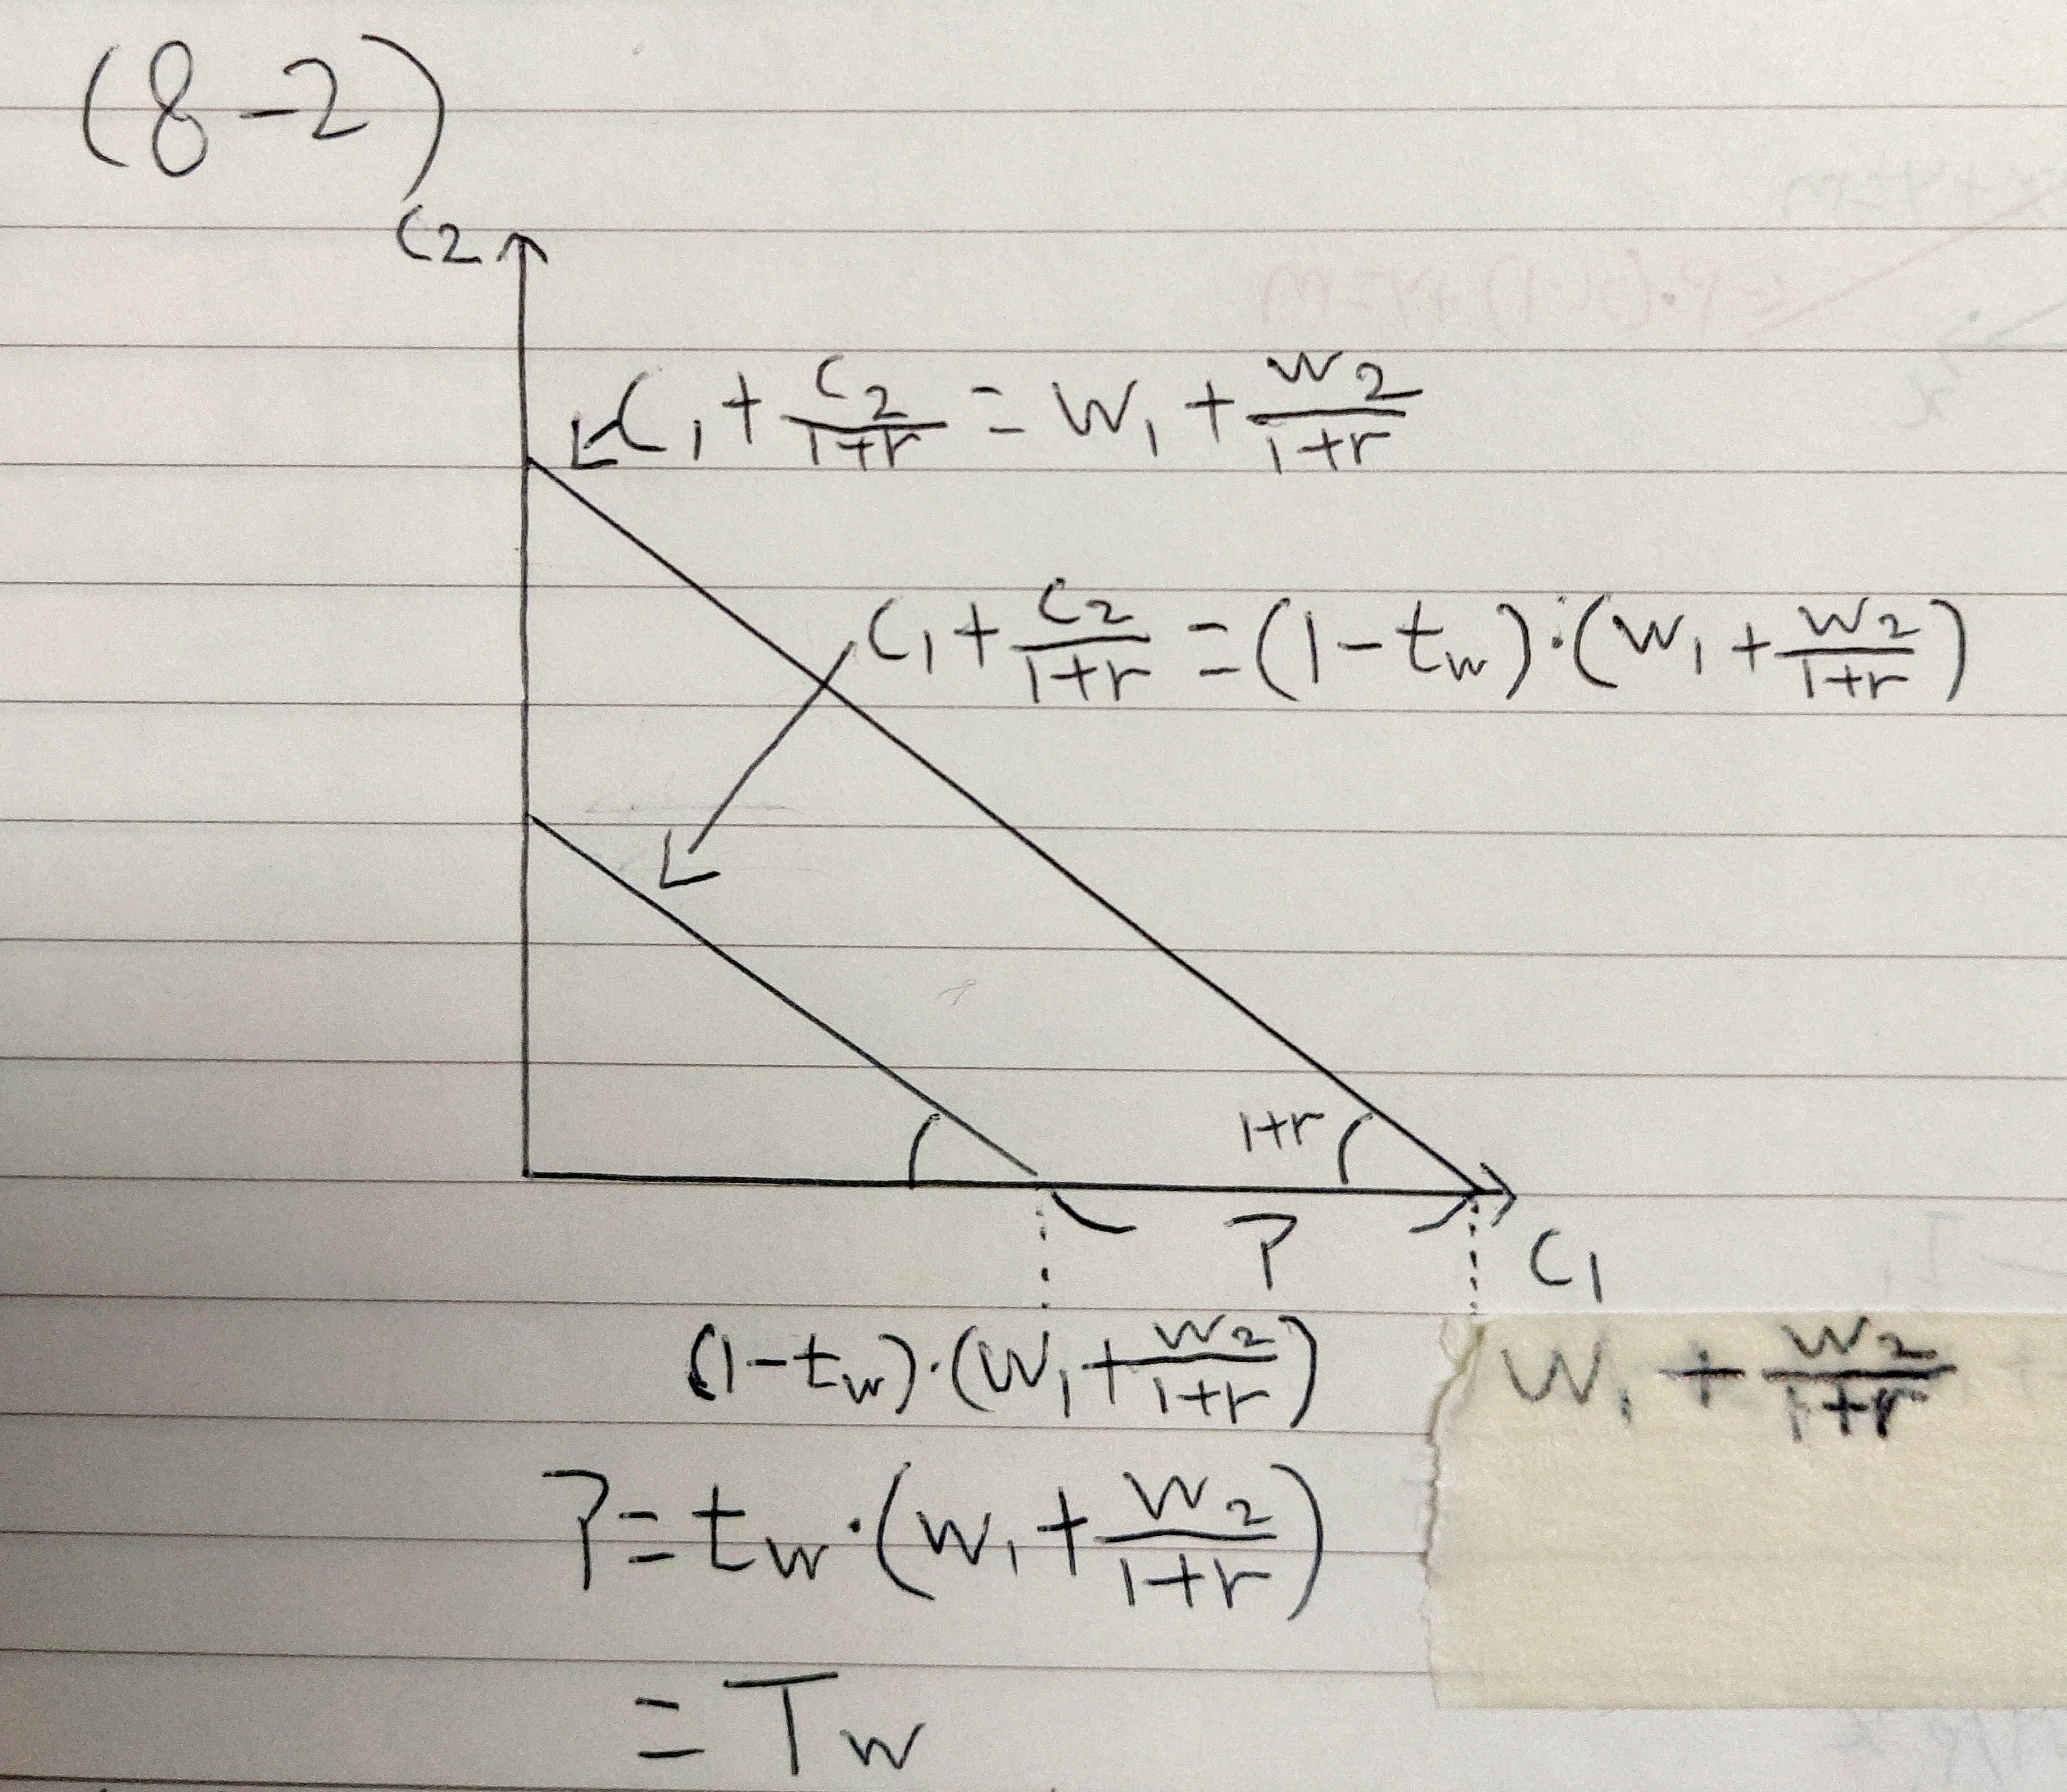 (8-2)
C2
C1 + C2/(1+r) = W1 + W2/(1+r)
C1 + C2/(1+r) = (1-tw)·(W1 + W2/(1+r))
1+r
?
C1
(1-tw)·(W1 + W2/(1+r))
W1 + W2/(1+r)
? = tw·(W1 + W2/(1+r))
= Tw